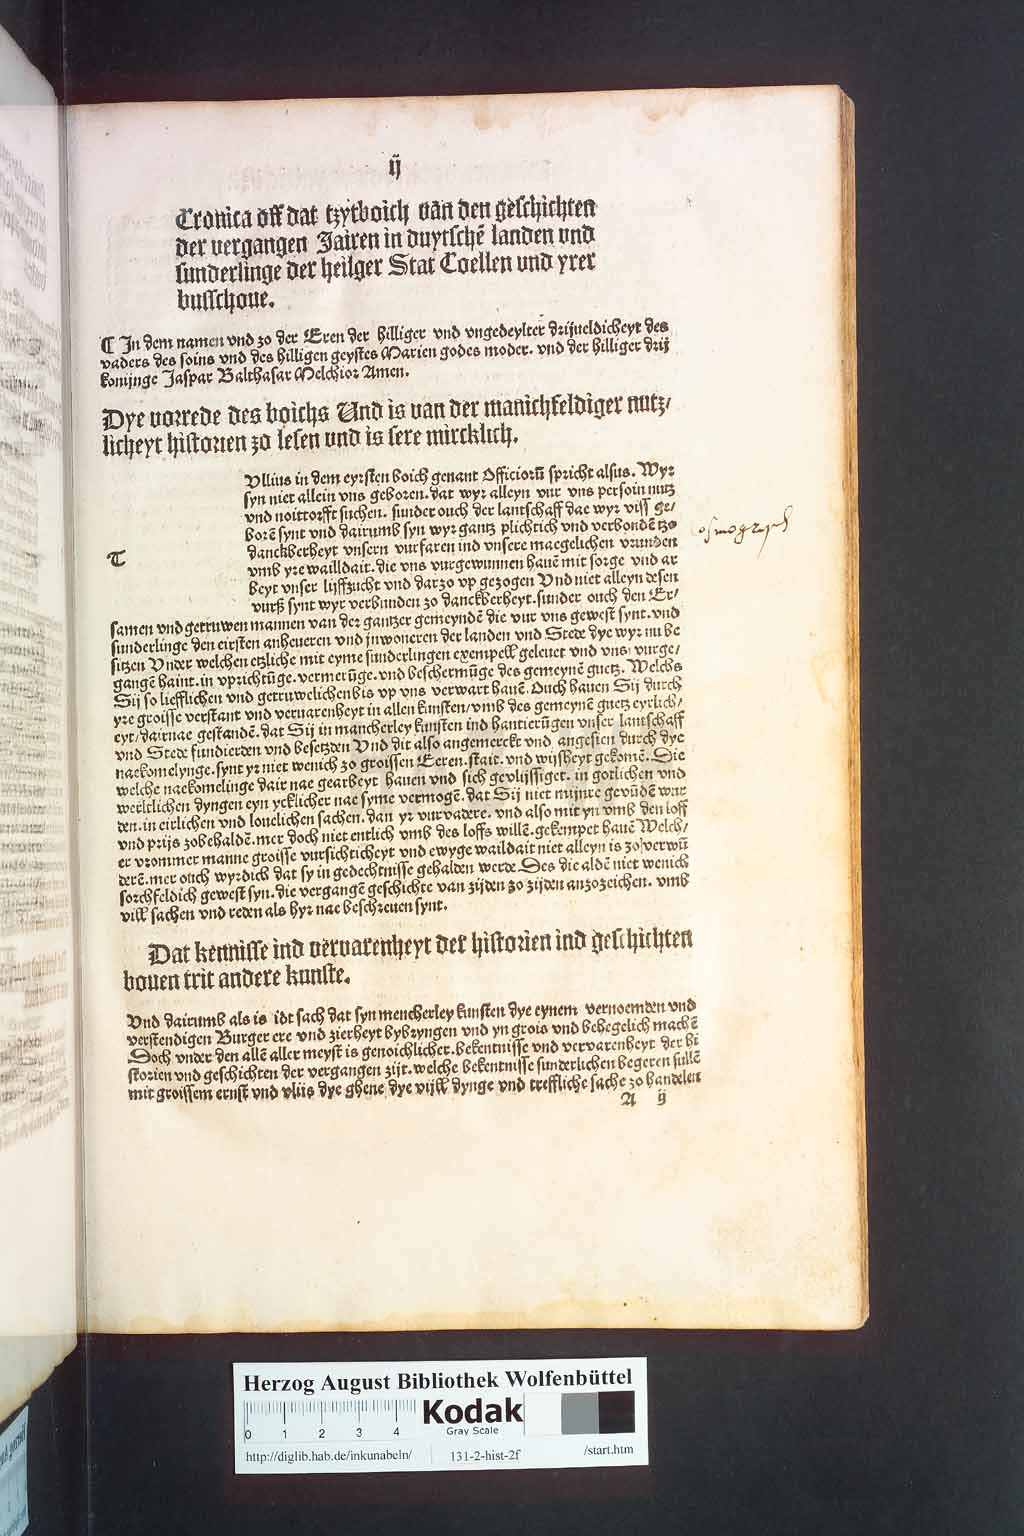 ij
Cronica off dat tzytboich van den geschichten
der vergangen Jairen in duytschē landen vnd
sunderlinge der heilger Stat Coellen vnd yrer
busschoue.
¶ In dem namen vnd zo der Eren der hilliger vnd vngedeylter drijueldicheyt des
vaders des soins vnd des hilligen geystes Marien godes moder. vnd der hilliger drij
konijnge Jaspar Balthasar Melchior Amen.
Dye vorrede des boichs Und is van der manichfeldiger nutz/
licheyt historien zo lesen vnd is sere mircklich.
T
Vllius in dem eyrsten boich genant Officiorū spricht alsus. Wyr
syn niet allein vns geboren. dat wyr alleyn vur vns persoin nutz
vnd noittorfft suchen. sunder ouch der lantschaff dae wyr viss ge/
borē synt vnd dairumb syn wyr gantz plichtich vnd verbondē tzo
danckberheyt vnsern vurfaren ind vnsere maegelichen vrunden
vmb yre wailldait. die vns vurgewunnen hauē mit sorge vnd ar
beyt vnser lijffzucht vnd darzo vp gezogen Vnd niet alleyn desen
vurß synt wyr verbunden zo danckberheyt. sunder ouch den Er/
samen vnd getruwen mannen van der gantzer gemeyndē die vur vns gewest synt. vnd
sunderlinge den eirsten anheueren vnd inwoneren der landen vnd Stede dye wyr nu be
sitzen Vnder welchen etzliche mit eyme sunderlingen exempell geleuet vnd vns vurge/
gangē haint. in vprichtūge. vermerūge. vnd beschermūge des gemeynē guetz. Welchs
Sij so liefflichen vnd getruwelichen bis vp vns verwart hauē. Ouch hauen Sij durch
yre groisse verstant vnd veruarenheyt in allen kunsten/ vmb des gemeynē guetz eyrlich/
eyt/ dairnae gestandē. dat Sij in mancherley kunsten ind hantierūgen vnser lantschaff
vnd Stede fundierden vnd besetzden Vnd dit also angemerckt vnd angesien durch dye
naekomelynge. synt yr niet wenich zo groissen Eeren. stait. vnd wijsheyt gekomē. Die
welche naekomelinge dair nae gearbeyt hauen vnd sich gevlijssiget. in gotlichen vnd
werltlichen dyngen eyn ycklicher nae syme vermogē. dat Sij niet mijnre gevūdē wur
den. in eirlichen vnd louelichen sachen. dan yr vurvadere. vnd also mit yn vmb den loff
vnd prijs zobehaldē. mer doch niet entlich vmb des loffs willē. gekempet hauē Welch/
er vrommer manne groisse vursichticheyt vnd ewyge waildait niet alleyn is zo verwū
derē. mer ouch wyrdich dat sy in gedechtnisse gehalden werde. Des die aldē niet wenich
sorchfeldich gewest syn. die vergangē geschichte van zijden zo zijden anzozeichen. vmb
vill sachen vnd reden als hyr nae beschreuen synt.
Dat kennisse ind veruarenheyt der historien ind geschichten
bouen trit andere kunste.
Vnd dairumb als is idt sach dat syn mencherley kunsten dye eynem vernoemden vnd
verstendigen Burger ere vnd zierheyt bybryngen vnd yn grois vnd behegelich machē
Doch vnder den allē aller meyst is genoichlicher. bekentnisse vnd vervarenheyt der hi
storien vnd geschichten der vergangen zijt. welche bekentnisse sunderlichen begeren sullē
mit groissem ernst vnd vliis dye ghene dye vijll dynge vnd treffliche sache zo handelen
A ij
Herzog August Bibliothek Wolfenbüttel
0 1 2 3 4
Kodak
Gray Scale
http://diglib.hab.de/inkunabeln/ 131-2-hist-2f /start.htm